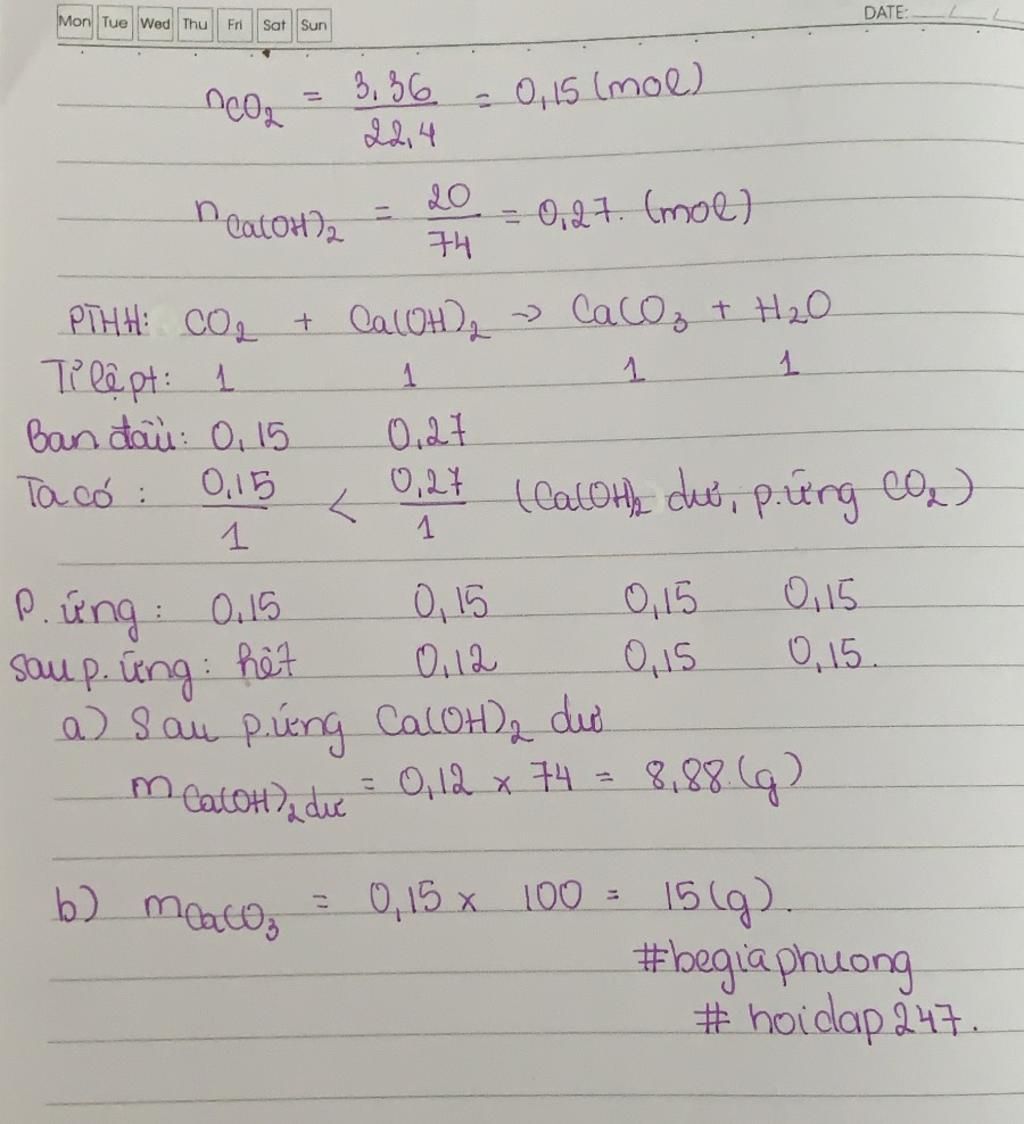 Mon Tue Wed Thu Fri Sat Sun DATE:
nCO₂ = 3,36/22,4 = 0,15 (mol)
nCa(OH)₂ = 20/74 = 0,27. (mol)
PTHH: CO₂ + Ca(OH)₂ -> CaCO₃ + H₂O
Tỉ lệ pt: 1 1 1 1
Ban đầu: 0,15 0,27
Ta có: 0,15/1 < 0,27/1 (Ca(OH)₂ dư, p.ứng CO₂)
P. ứng: 0,15 0,15 0,15 0,15
sau p. ứng: hết 0,12 0,15 0,15.
a) Sau p.ứng Ca(OH)₂ dư
mCa(OH)₂ dư = 0,12 x 74 = 8,88. (g)
b) mCaCO₃ = 0,15 x 100 = 15 (g).
#begiaphuong
# hoidap247.